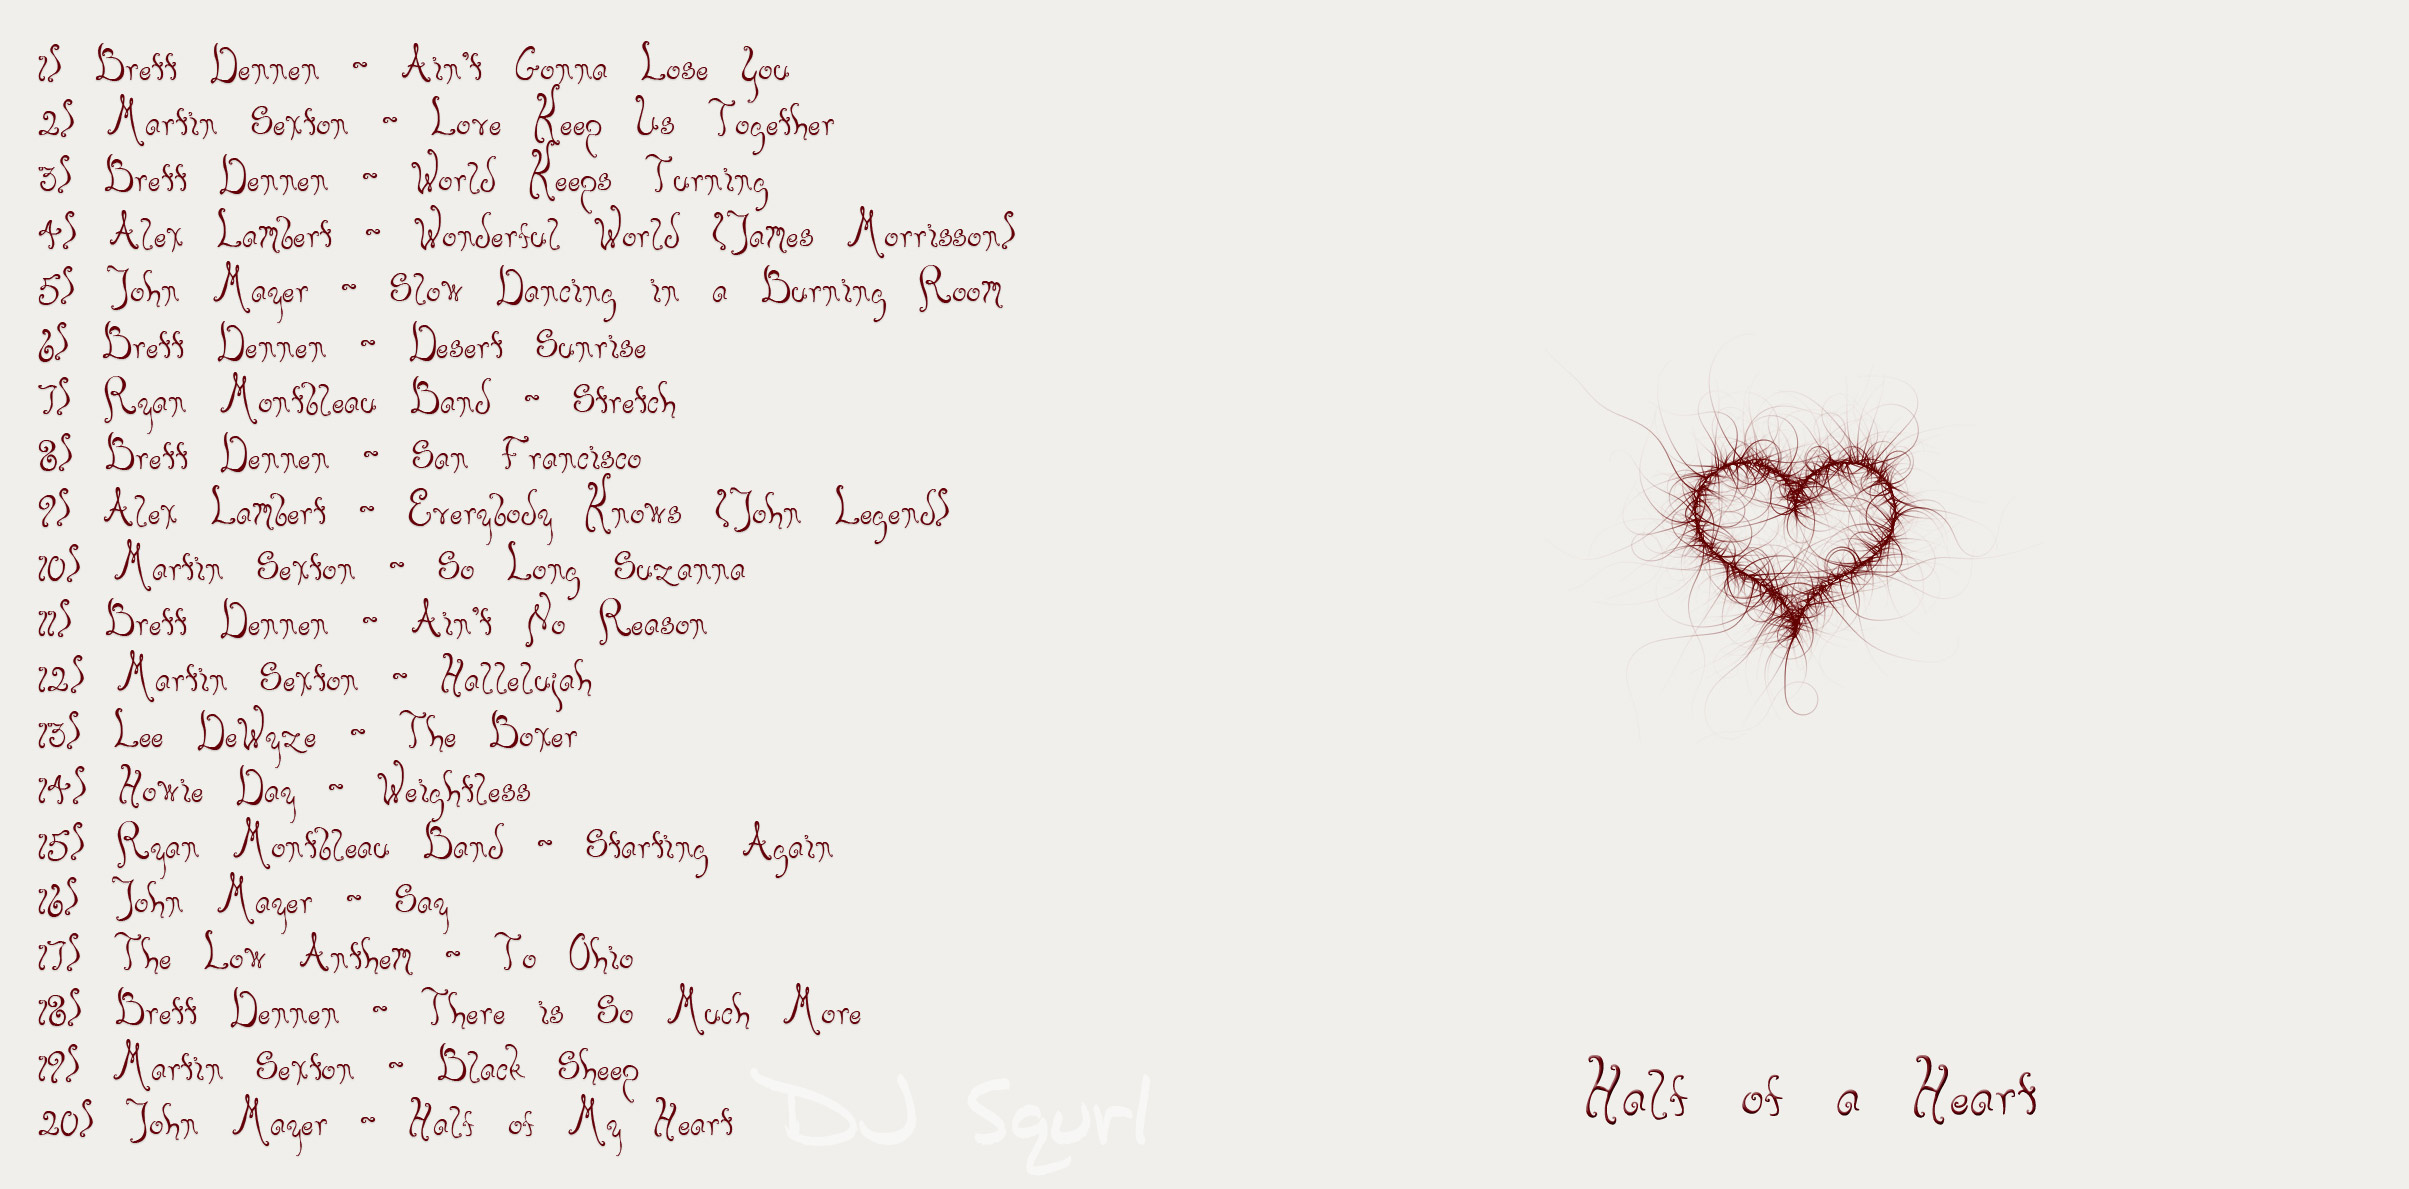 1) Brett Dennen ~ Ain't Gonna Lose You
2) Martin Sexton ~ Love Keep Us Together
3) Brett Dennen ~ World Keeps Turning
4) Alex Lambert ~ Wonderful World (James Morrisson)
5) John Mayer ~ Slow Dancing in a Burning Room
6) Brett Dennen ~ Desert Sunrise
7) Ryan Montbleau Band ~ Stretch
8) Brett Dennen ~ San Francisco
9) Alex Lambert ~ Everybody Knows (John Legend)
10) Martin Sexton ~ So Long Suzanna
11) Brett Dennen ~ Ain't No Reason
12) Martin Sexton ~ Hallelujah
13) Lee DeWyze ~ The Boxer
14) Howie Day ~ Weightless
15) Ryan Montbleau Band ~ Starting Again
16) John Mayer ~ Say
17) The Low Anthem ~ To Ohio
18) Brett Dennen ~ There is So Much More
19) Martin Sexton ~ Black Sheep
20) John Mayer ~ Half of My Heart
DJ Squrl
Half of a Heart